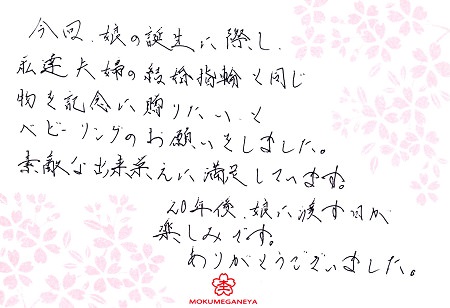 今回、娘の誕生に際し、
私達夫婦の結婚指輪と同じ
物を記念に贈りたい、と
ベビーリングのお願いをしました。
素敵な出来栄えに満足しています。
20年後、娘に渡す日が
楽しみです。
ありがとうございました。
MOKUMEGANEYA